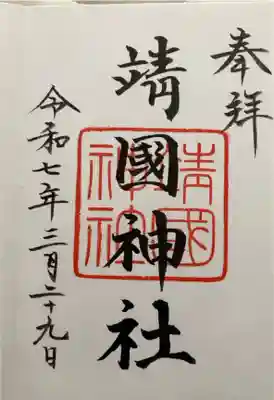 奉拝
靖國神社
令和七年三月二十九日
靖国
神社